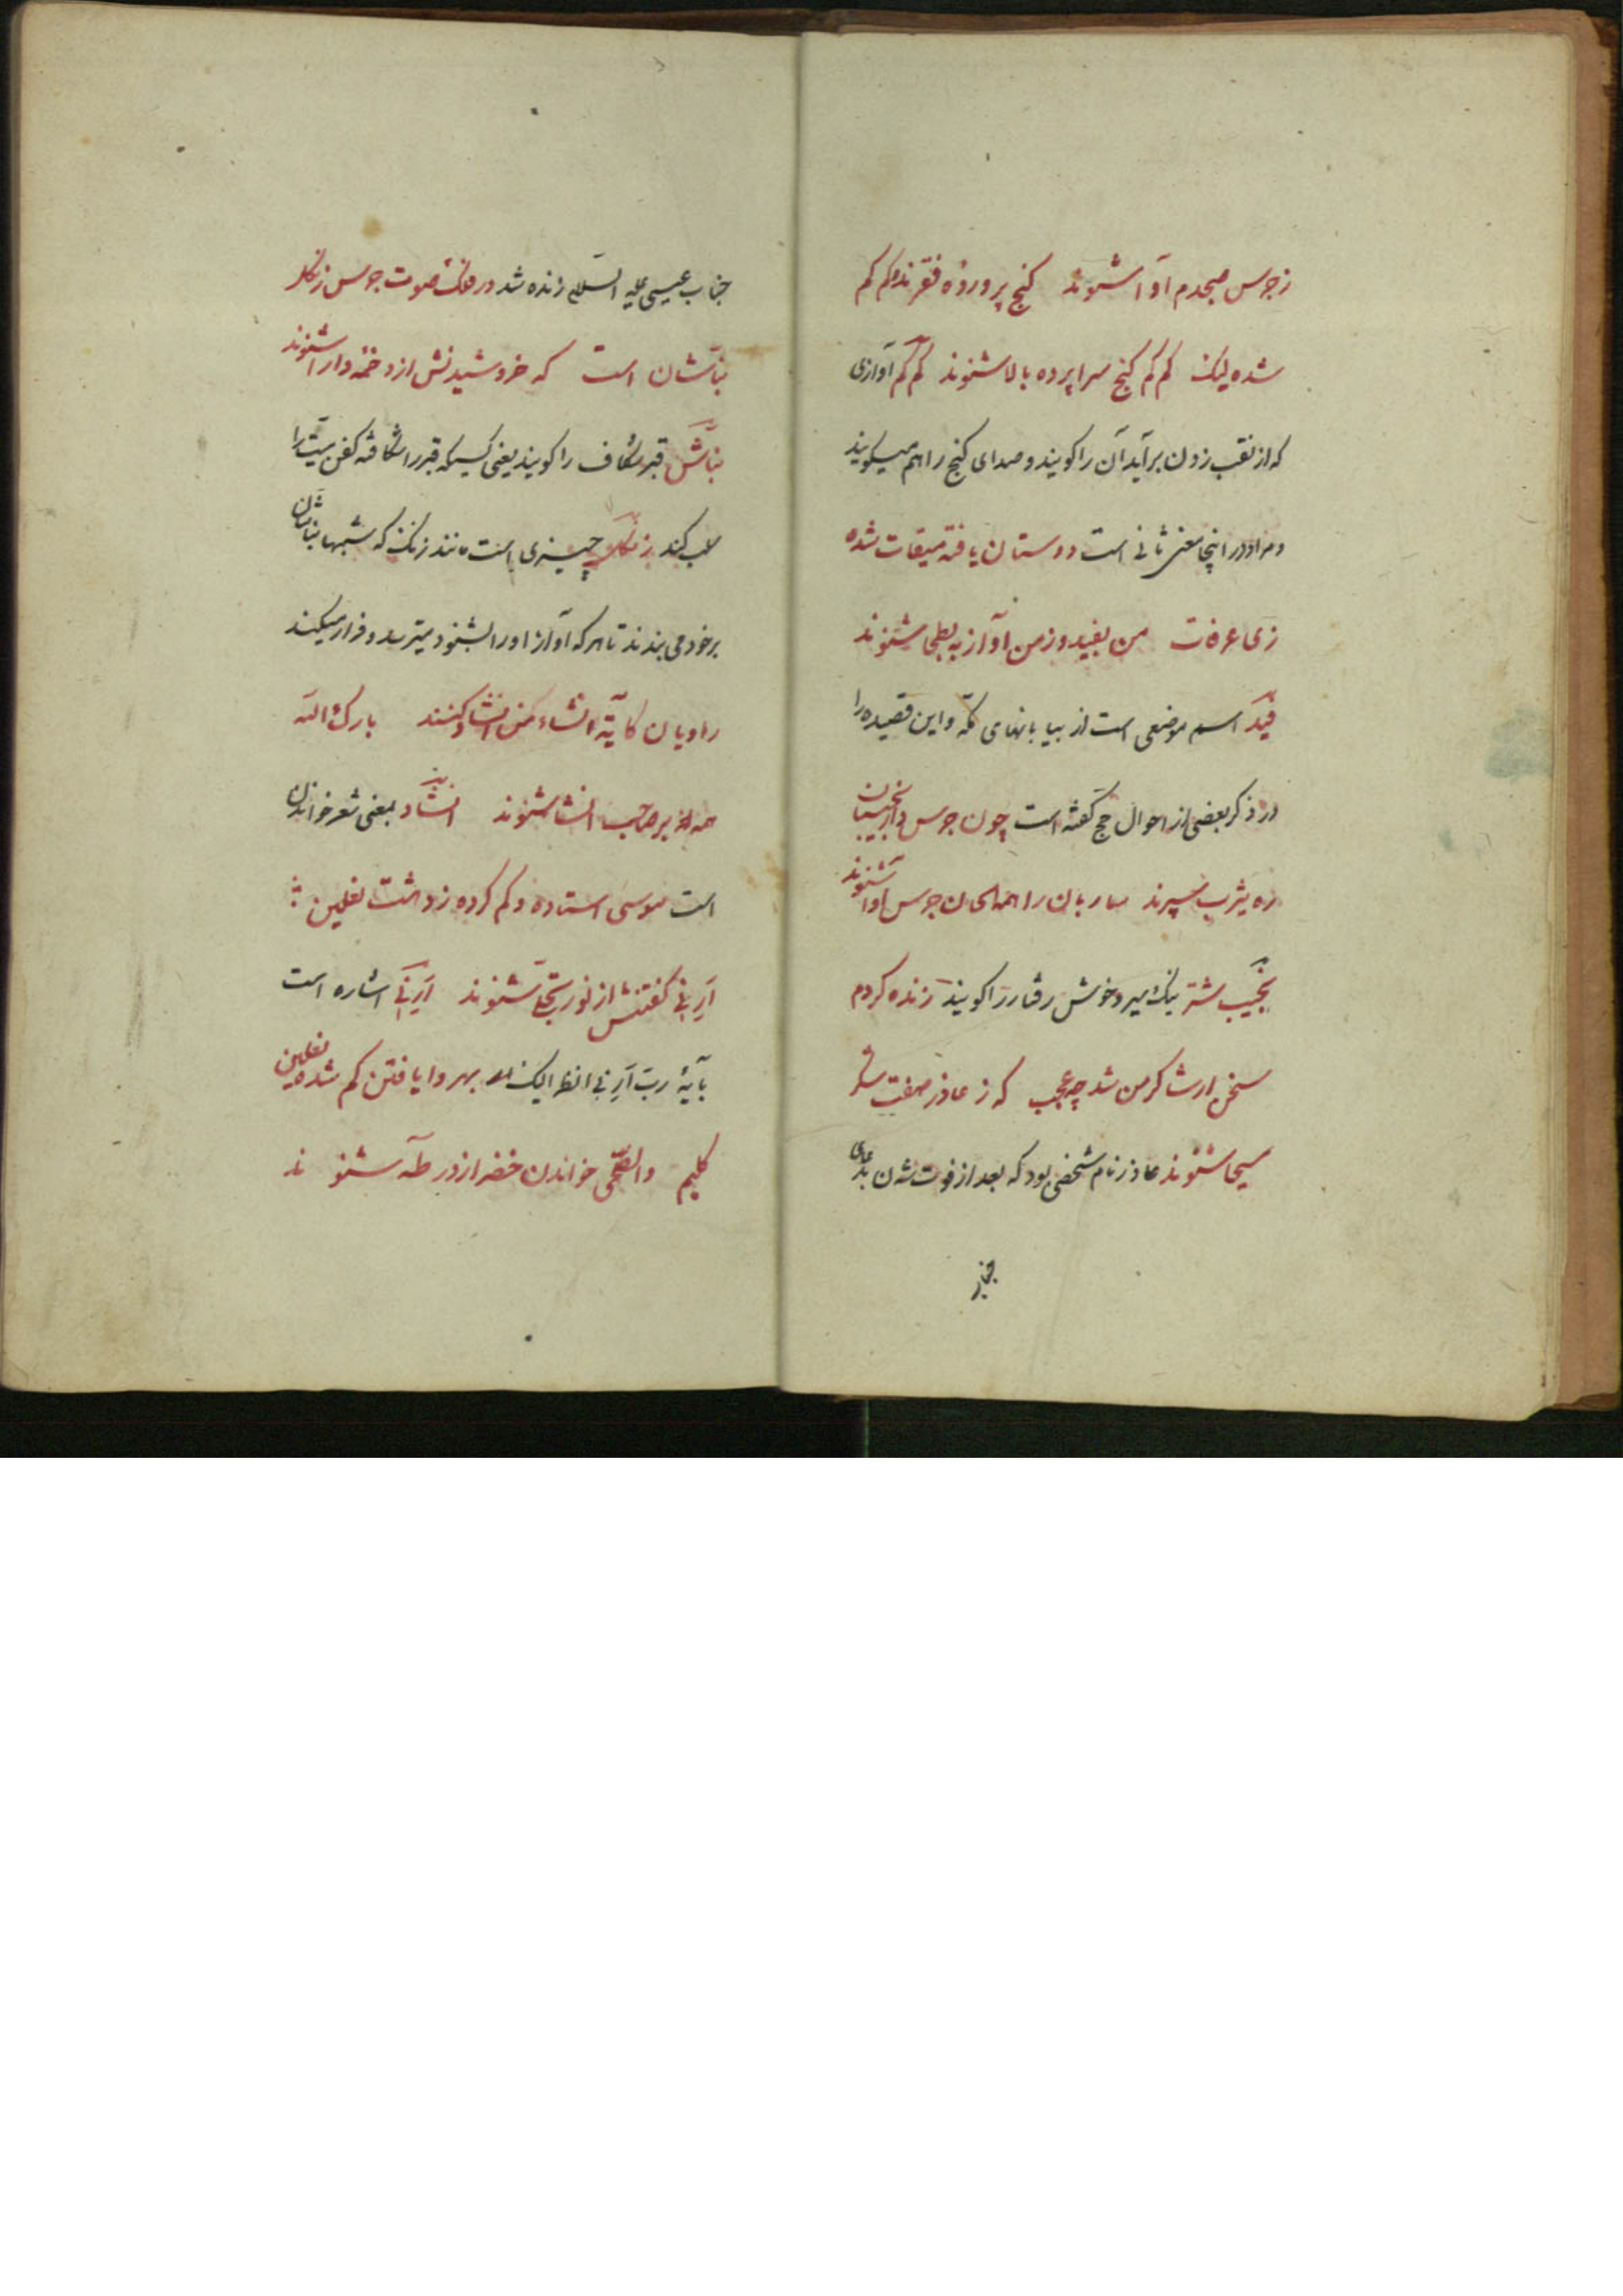 ز جرس صبحدم آوا شنوند کنج پرورده فقرند و کم کم
شده لیک کم کم کنج سراپرده بالا شنوند کم کم آوازی
که از نقب زدن برآید آن را گویند و صدای کنج را هم میگویند
و مراد در اینجا معنی ثانی است دوستان یافته میقات شده
زی عرفات من بفید و ز من آواز به بطحا شنوند
فید اسم موضعی است از بیابانهای مکه و این قصیده را
در ذکر بعضی از احوال حج گفته است چون جرس دار نجیبان
ره یثرب سپرند ساربان را همه الحان جرس آوا شنوند
نجیب شتر نیک سیر و خوش رفتار را گویند زنده کردم
سخن ار شاکر من شد چه عجب که ز عاذر صفت شکر
مسیحا شنوند عاذر نام شخصی بود که بعد از فوت شدن بدعای
جناب
جناب عیسی علیه السلام زنده شد در فلک صوت جرس زنگله
نباشان است که خروشیدنش از دخمه دارا شنوند
نباش قبر شکاف را گویند یعنی کسیکه قبر را شکافته کفن میت را
سلب کند زنگله چیزی است مانند زنگ که شبها نباشان
بر خود می بندند تا هر که آواز او را بشنود میترسد و فرار میکند
راویان کایه انشاء من انشاد کنند بارک الله
همه بر صاحب انشا شنوند انشاد بمعنی شعر خواندن
است موسی استاده و گم کرده ز دهشت نعلین
اَرِنی گفتنش از نور تجلا شنوند اَرِنی اشاره است
بآیهٔ رب اَرِنی انظر الیک بهر وا یافتن گم شده نعلین
کلیم والضحی خواندن خضر از در طه شنوند